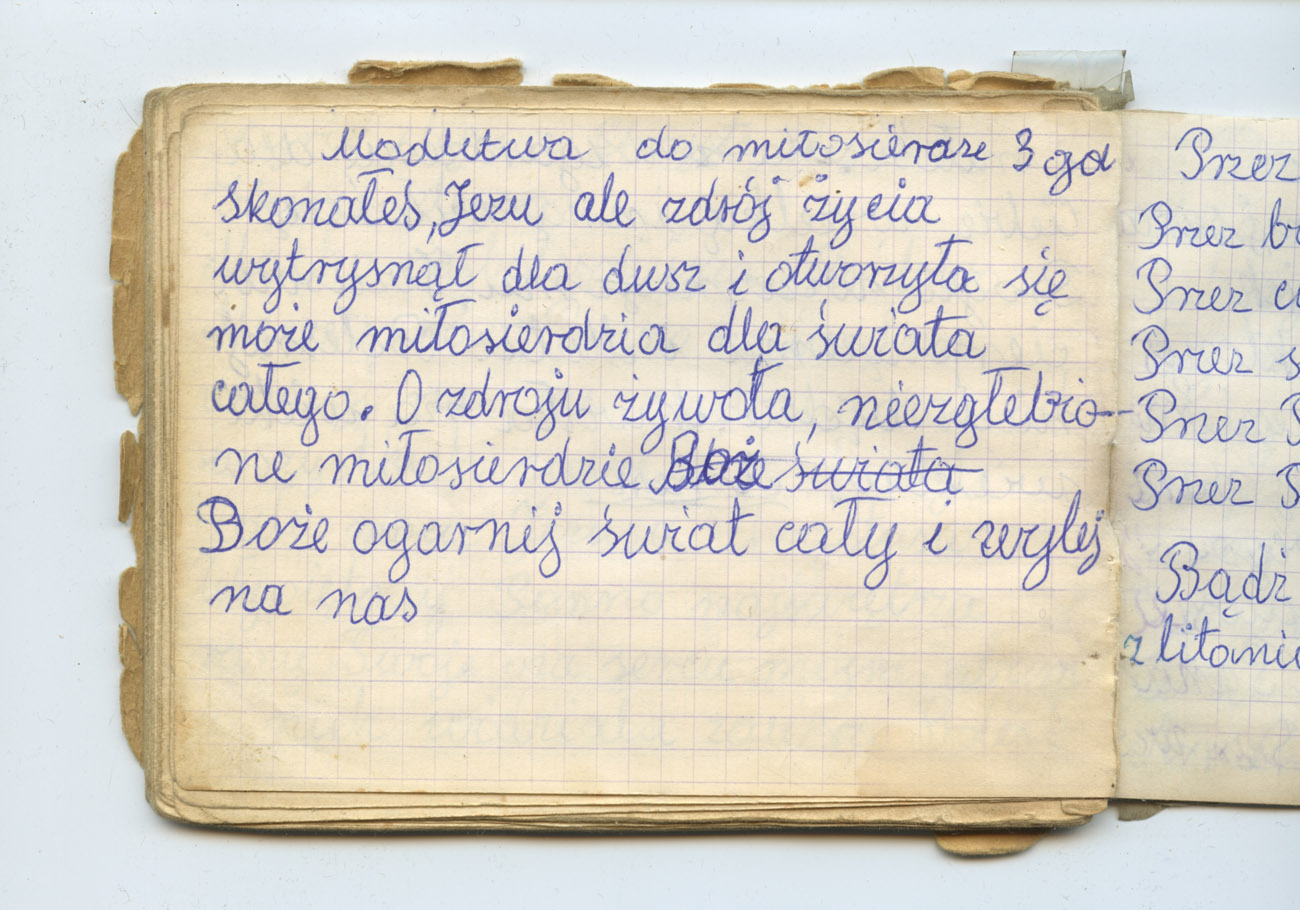 Modlitwa do miłosierdze 3 god
skonałeś, Jezu ale zdrój życia
wytrysnął dla dusz i otworzyła się
może miłosierdzia dla świata
całego. O zdroju żywota, niezgłebio-
ne miłosierdzie Boże świata
Boże ogarnij świat cały i wylej
na nas
Przez
Przez
Przez
Przez
Przez
Przez
Bądź
z litanie